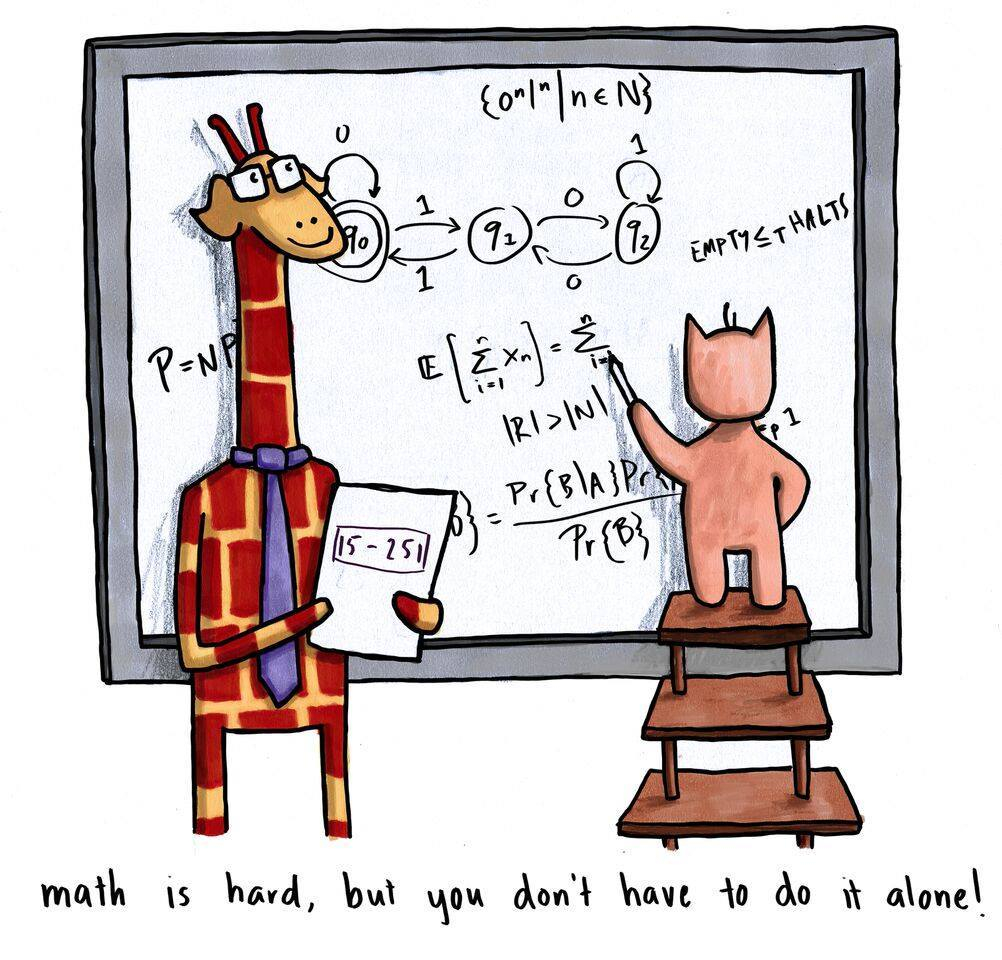 {0ⁿ1ⁿ|n∈N}
0
1
1
0
q₀
q₁
q₂
1
0
EMPTY ≤ T HALTS
P=NP
𝔼[∑ⁿᵢ₌₁ Xₙ] = ∑ⁿᵢ₌
|R|>|N|
=ₚ1
} = Pr{B|A}Pr{
Pr{B}
15-251
math is hard, but you don't have to do it alone!